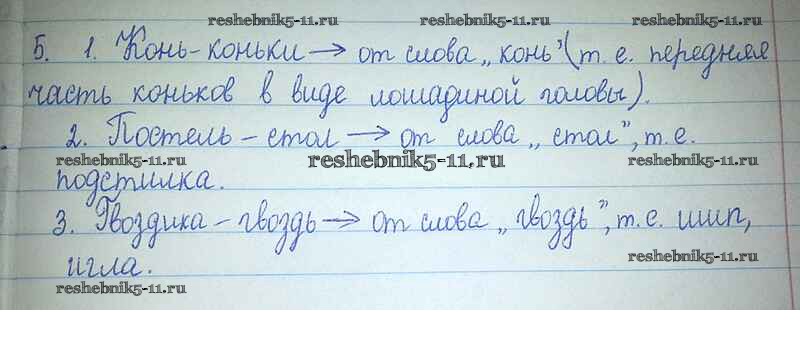 reshebnik5-11.ru reshebnik5-11.ru reshebnik5-11.ru
Б. 1. Конь-коньки → от слова „конь" (т. е. передняя
часть коньков в виде лошадиной головы).
2. Постель – стол → от слова „стол", т. е.
reshebnik5-11.ru reshebnik5-11.ru reshebnik5-11.ru
подстилка.
3. Гвоздика – гвоздь → от слова „гвоздь", т. е. шип,
игла.
reshebnik5-11.ru
reshebnik5-11.ru